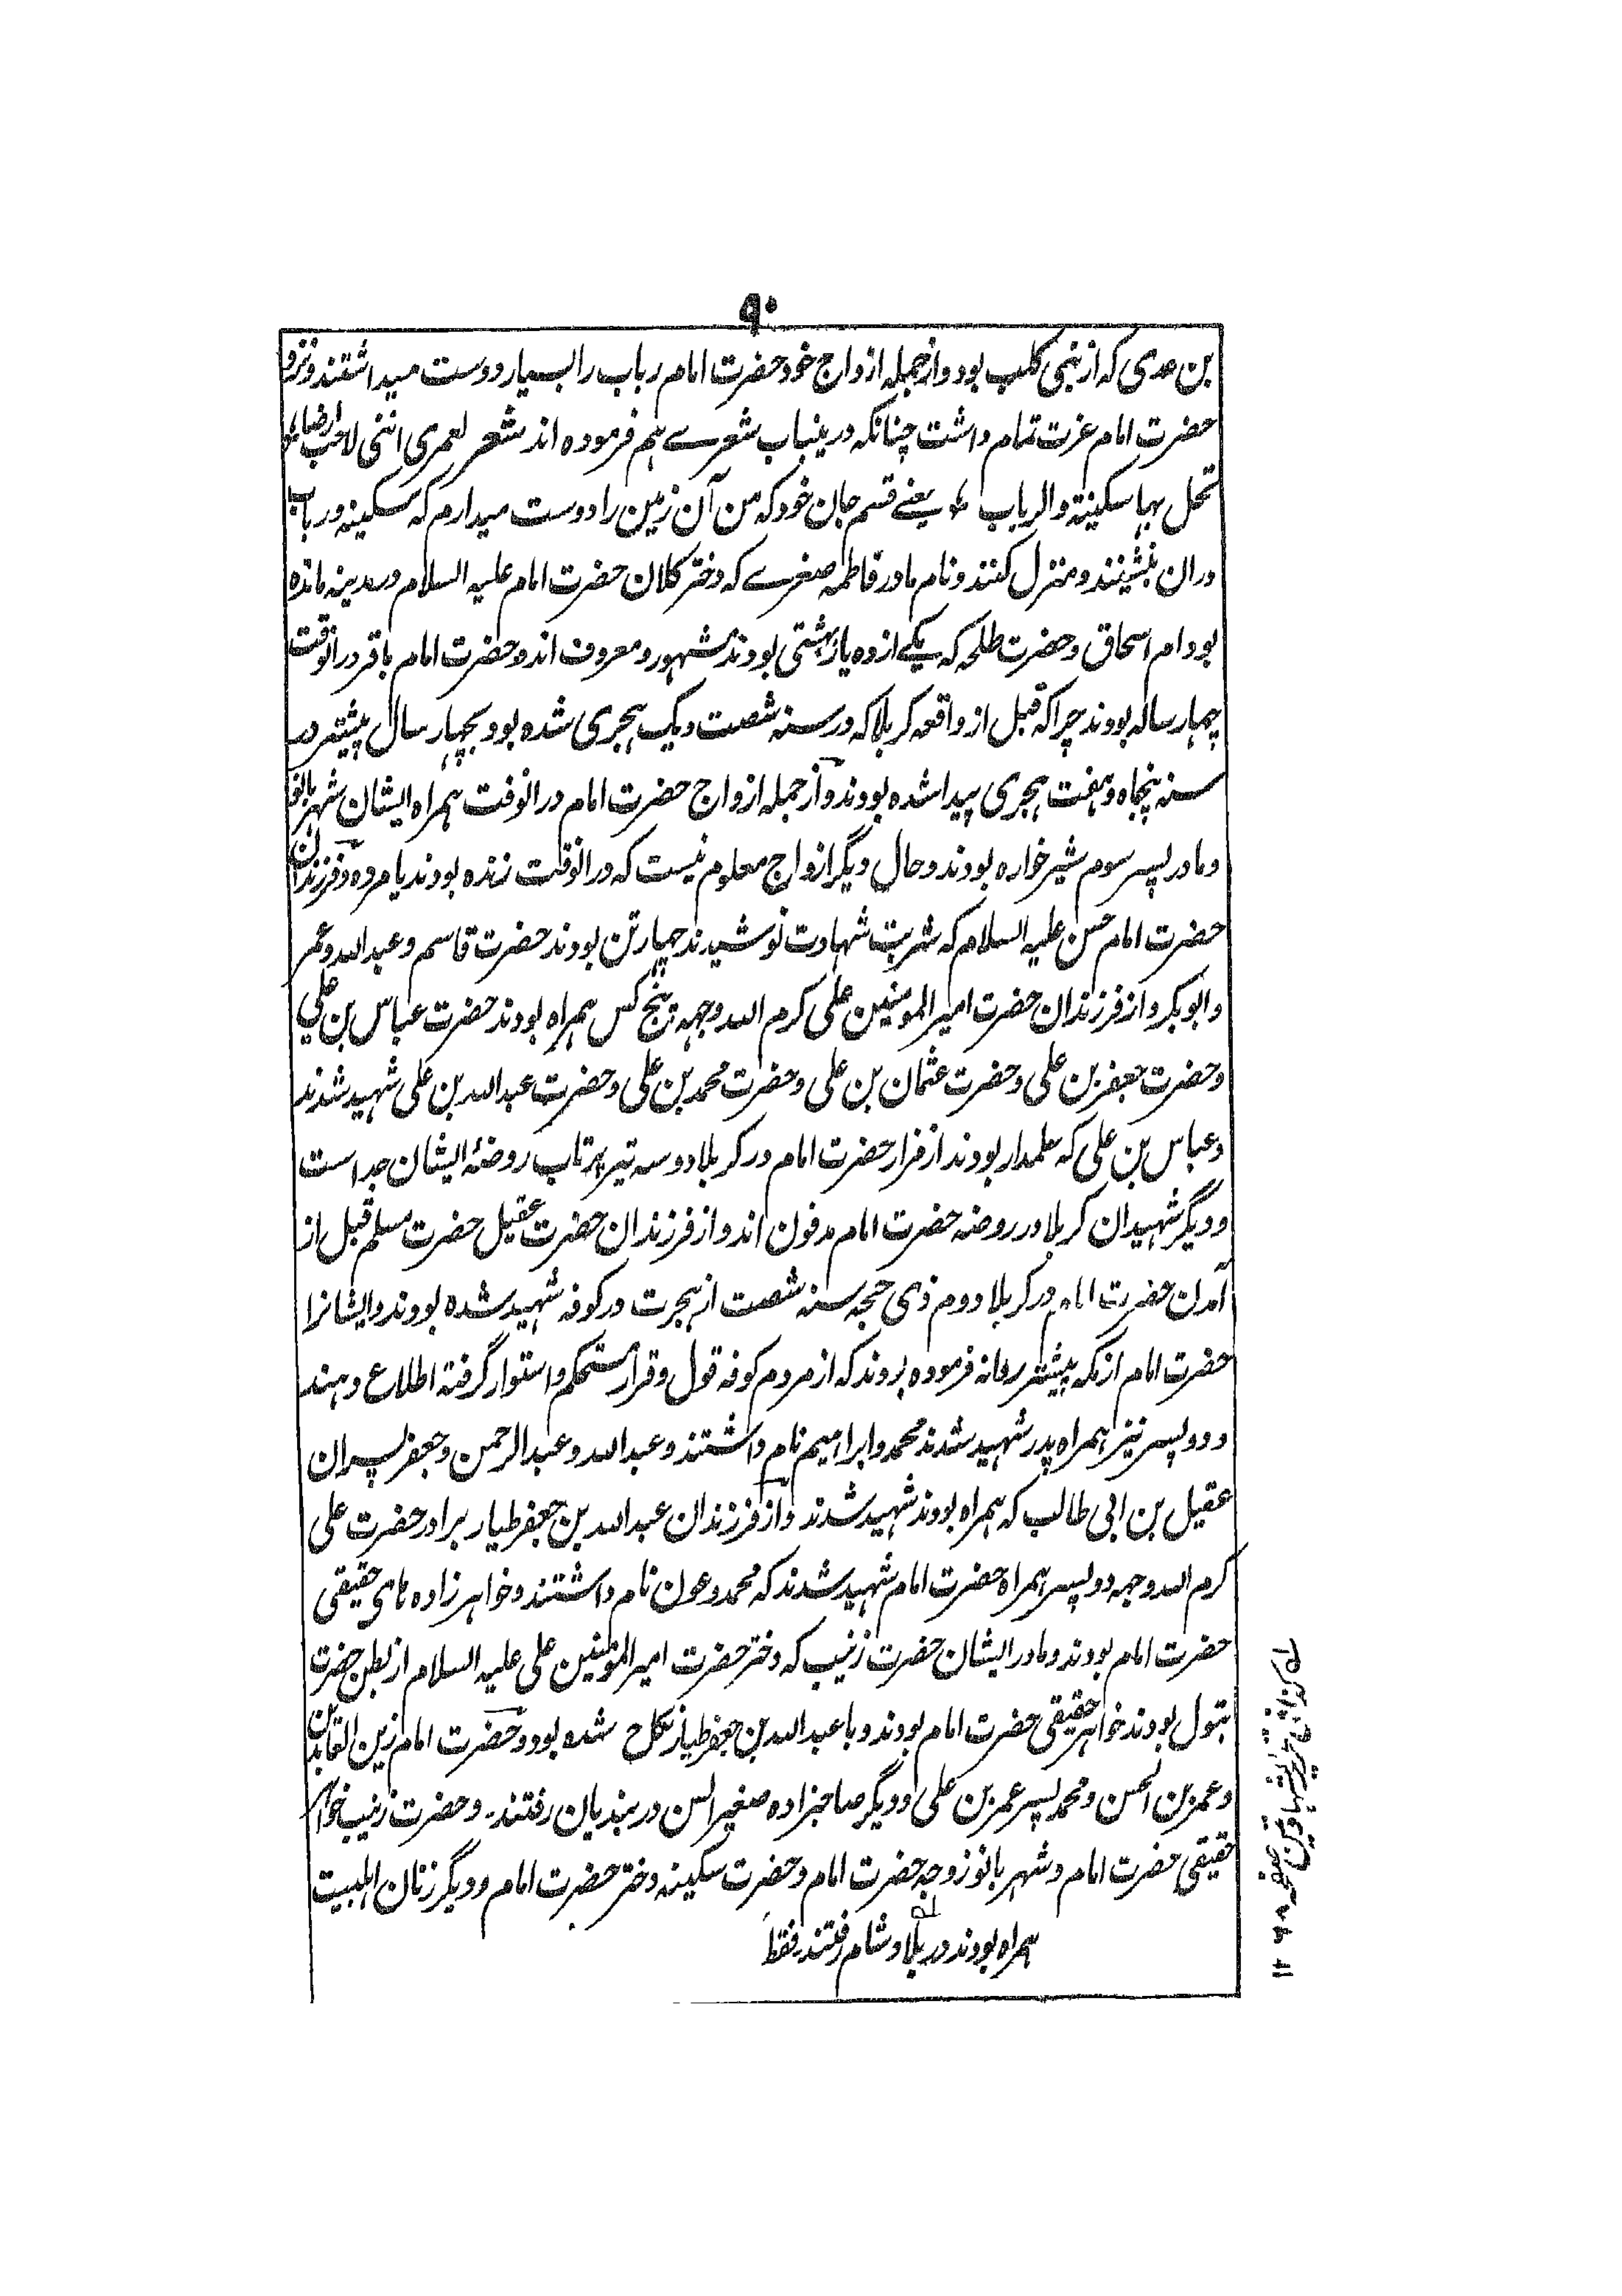 ۹۰
بن عدی که از بنی کلب بود و از جمله ازواج خود حضرت امام رباب را بسیار دوست میداشتند و نزد
حضرت امام عزت تمام داشت چنانکه درینباب شعرے هم فرموده اند شعر لعمری اننی لاحب ارضا
تحل بها سکینة والرباب یعنے قسم جان خود که من آن زمین را دوست میدارم که سکینه و رباب
دران بنشینند و منزل کنند و نام مادر فاطمه صغرے که دختر کلان حضرت امام علیه السلام در مدینه مانده
بود ام اسحاق و حضرت طلحه که یکے از ده یار بهشتی بودند مشهور و معروف اند و حضرت امام باقر درانوقت
چهار ساله بودند چرا که قبل از واقعه کربلا که در سنه شصت و یک هجری شده بود بچهار سال پیشتر در
سنه پنجاه و هفت هجری پیدا شده بودند و از جمله ازواج حضرت امام درانوقت همراه ایشان شهربانو
و مادر پسر سوم شیرخواره بودند و حال دیگر ازواج معلوم نیست که درانوقت زنده بودند یا مرده و فرزندان
حضرت امام حسن علیه السلام که شربت شهادت نوشیدند چهار تن بودند حضرت قاسم و عبدالله و عمر
و ابوبکر و از فرزندان حضرت امیر المومنین علی کرم الله وجهه پنج کس همراه بودند حضرت عباس بن علی
و حضرت جعفر بن علی و حضرت عثمان بن علی و حضرت محمد بن علی و حضرت عبدالله بن علی شهید شدند
و عباس بن علی که علمدار بودند از مزار حضرت امام در کربلا دو سه تیر پرتاب روضهٔ ایشان جداست
و دیگر شهیدان کربلا در روضه حضرت امام مدفون اند و از فرزندان حضرت عقیل حضرت مسلم قبل از
آمدن حضرت امام در کربلا دوم ذی حجه سنه شصت از هجرت در کوفه شهید شده بودند و ایشانرا
حضرت امام از مکه پیشتر روانه فرموده بودند که از مردم کوفه قول و قرار مستحکم و استوار گرفته اطلاع دهند
و دو پسر نیز همراه پدر شهید شدند محمد و ابراهیم نام داشتند و عبدالله و عبدالرحمن و جعفر پسران
عقیل بن ابی طالب که همراه بودند شهید شدند و از فرزندان عبدالله بن جعفر طیار برادر حضرت علی
کرم الله وجهه دو پسر همراه حضرت امام شهید شدند که محمد و عون نام داشتند و خواهر زاده های حقیقی
حضرت امام بودند و مادر ایشان حضرت زینب که دختر حضرت امیر المومنین علی علیه السلام از بطن حضرت
بتول بودند خواهر حقیقی حضرت امام بودند و با عبدالله بن جعفر طیار نکاح شده بود و حضرت امام زین العابدین
و عمر بن الحسن و محمد پسر عمر بن علی و دیگر صاحبزاده صغیر السن در بندیان رفتند۔ و حضرت زینب خواهر
حقیقی حضرت امام و شهربانو زوجه حضرت امام و حضرت سکینه دختر حضرت امام و دیگر زنان اهلبیت
همراه بودند در بلاد شام رفتند فقط